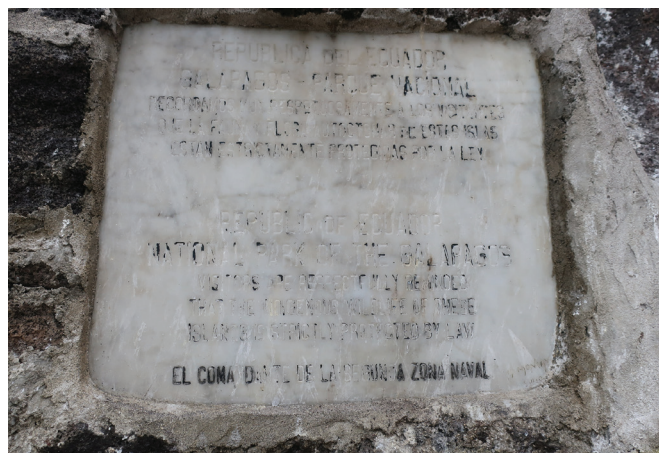 REPUBLICA DEL ECUADOR
GALAPAGOS - PARQUE NACIONAL
RECUERDA RESPETUOSAMENTE A LOS VISITANTES
QUE LA FLORA DE ESTAS ISLAS
ESTAN ESTRICTAMENTE PROTEGIDAS POR LA LEY
REPUBLIC OF ECUADOR
NATIONAL PARK OF THE GALAPAGOS
VISITORS ARE RESPECTFULLY REMINDED
THAT THE LIFE OF THESE
ISLANDS STRICTLY PROTECTED BY LAW
EL COMANDANTE DE LA SEGUNDA ZONA NAVAL